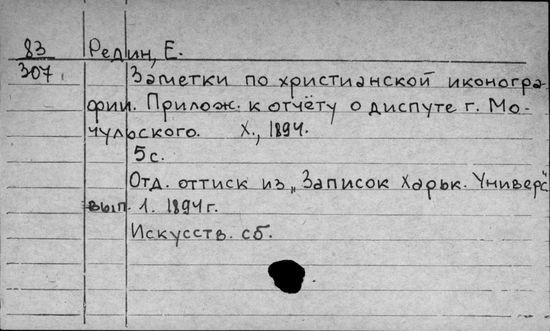 83 Редин, Е.
307 Заметки по христианской иконогра
фии. Прилож. к отчёту о диспуте г. Мо-
чульского. Х., 1894.
5 с.
Отд. оттиск из „Записок Харьк. Универс"
вып. 1. 1894 г.
Искусств. сб.